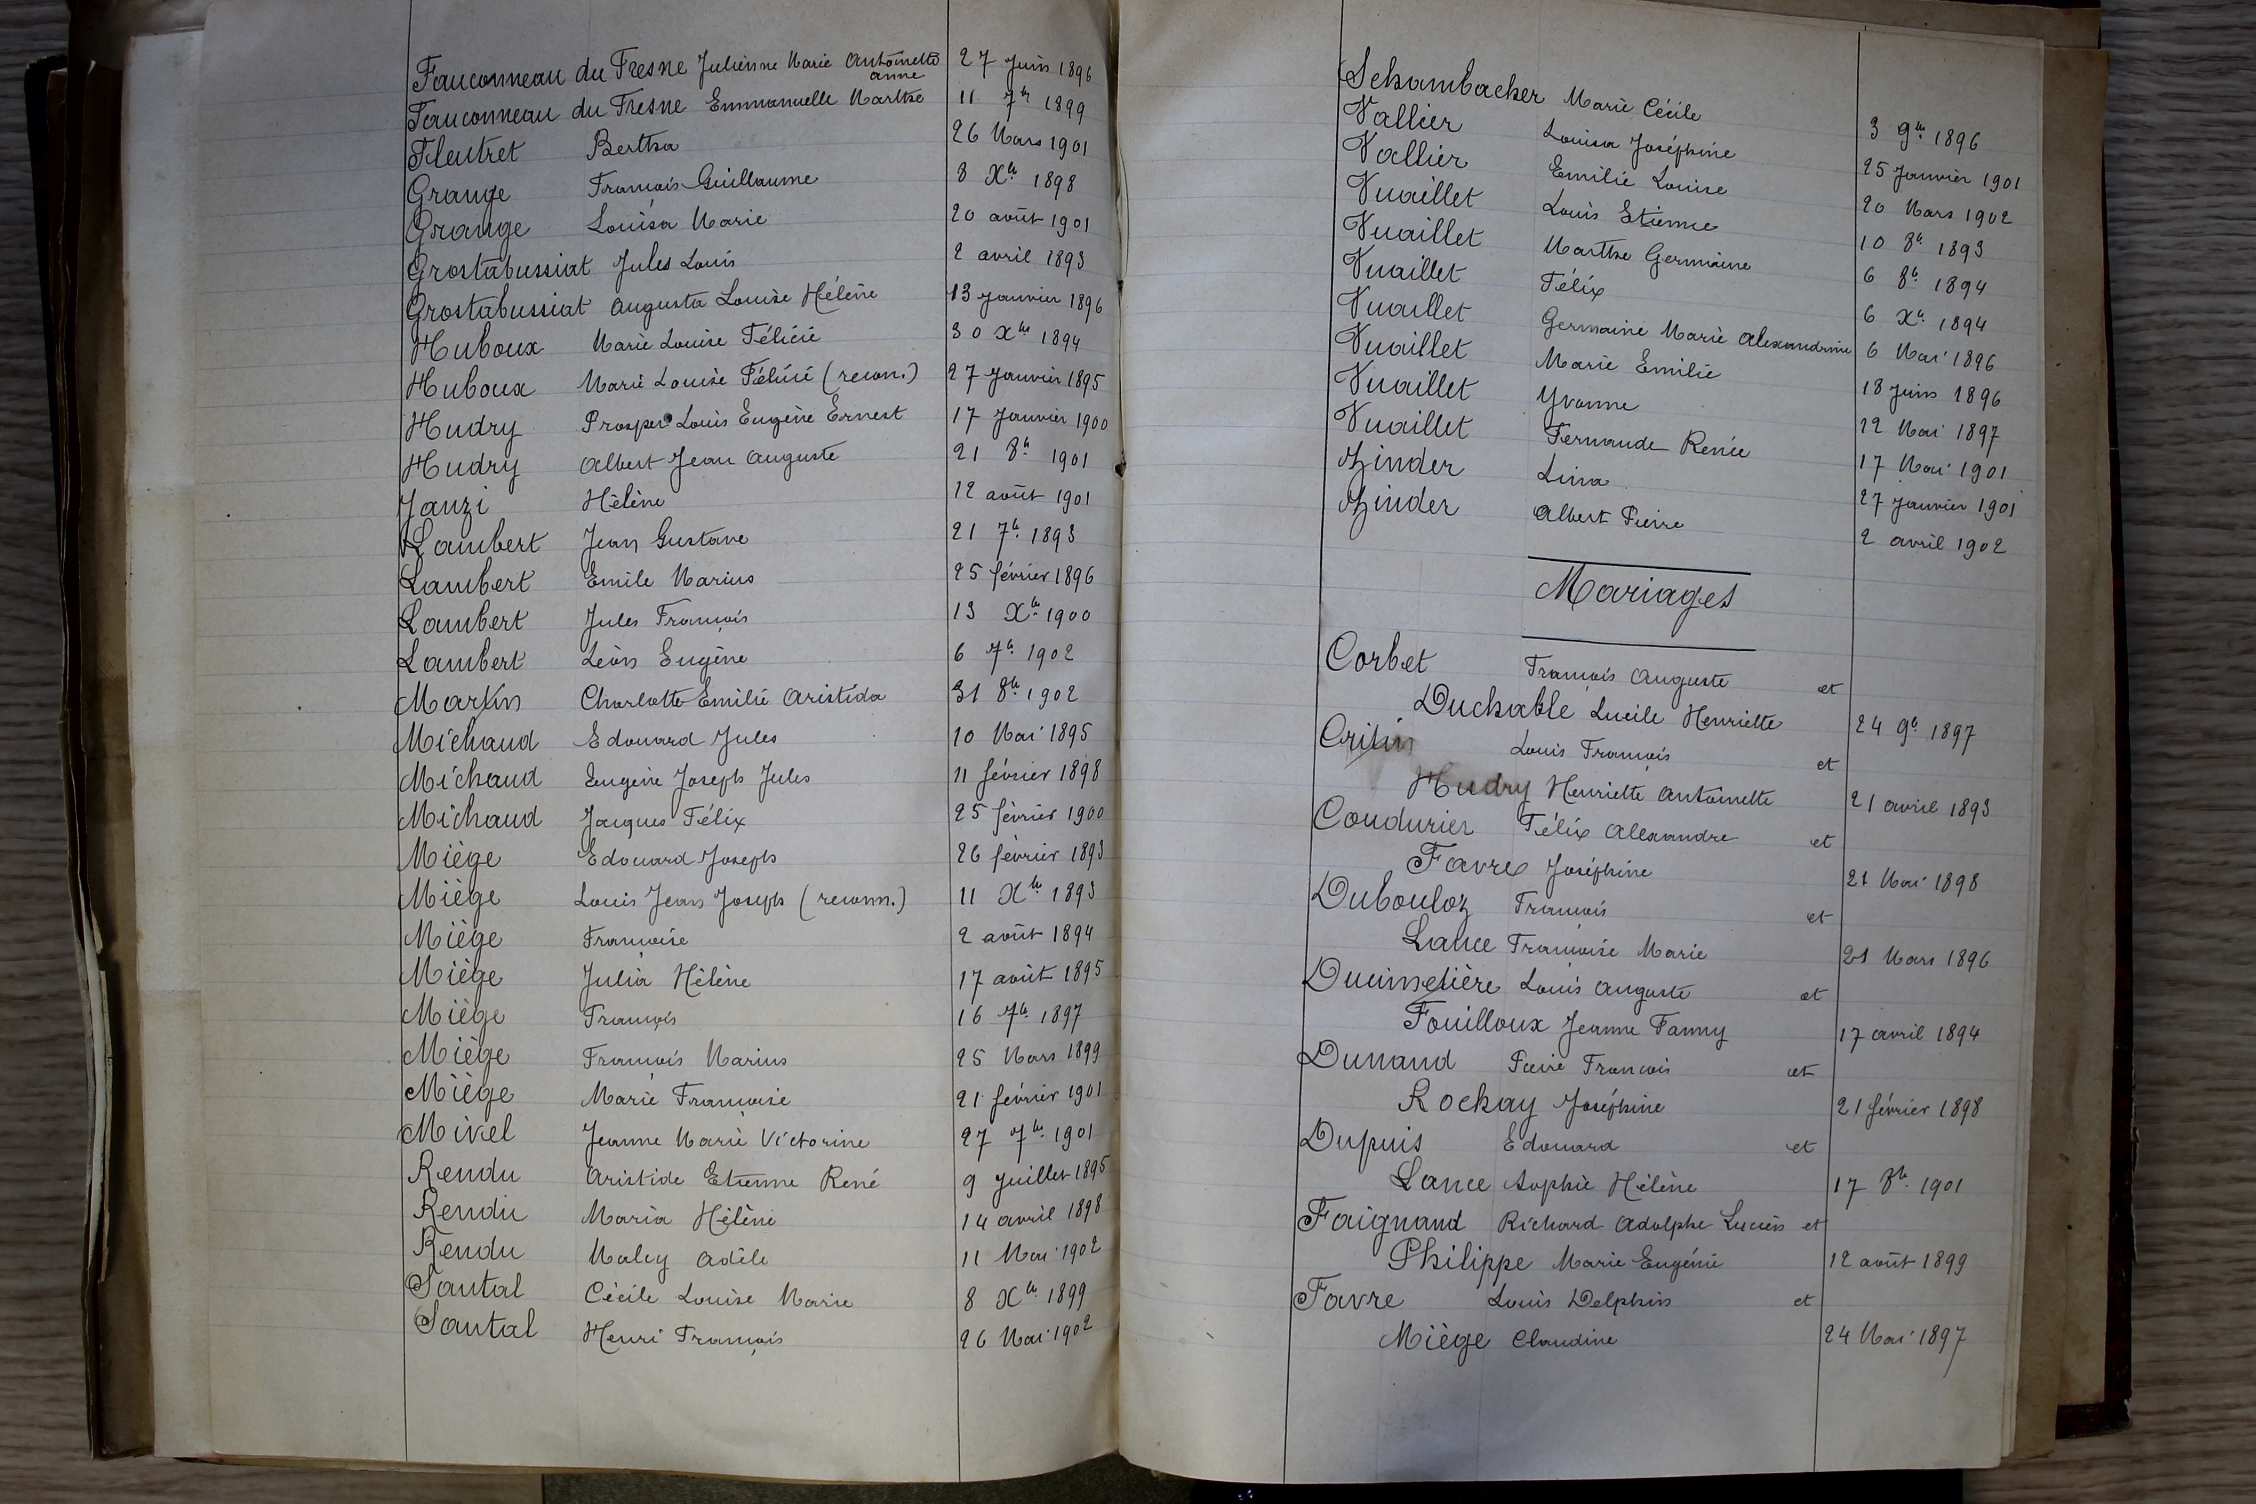 Fauconneau du Fresne Julienne Marie Antoinette anne 27 Juin 1896
Fauconneau du Fresne Emmanuelle Marthe 11 7bre 1899
Fleutret Bertha 26 Mars 1901
Grange François Guillaume 8 Xbre 1898
Grange Louisa Marie 20 août 1901
Grostabussiat Jules Louis 2 avril 1893
Grostabussiat Augusta Louise Hélène 13 Janvier 1896
Huboux Marie Louise Félicie 30 Xbre 1894
Huboux Marie Louise Félicie (recon.) 27 Janvier 1895
Hudry Prosper Louis Eugène Ernest 17 Janvier 1900
Hudry Albert Jean Auguste 21 8bre 1901
Janzi Hélène 12 août 1901
Lambert Jean Gustave 21 7bre 1893
Lambert Emile Marius 25 février 1896
Lambert Jules François 13 Xbre 1900
Lambert Léon Eugène 6 7bre 1902
Martin Charlotte Emilie Aristida 31 8bre 1902
Michaud Edouard Jules 10 Mai 1895
Michaud Eugène Joseph Jules 11 février 1898
Michaud Jacques Félix 25 février 1900
Miège Edouard Joseph 26 février 1893
Miège Louis Jean Joseph (reconn.) 11 Xbre 1893
Miège Françoise 2 août 1894
Miège Julia Hélène 17 août 1895
Miège François 16 7bre 1897
Miège François Marius 25 Mars 1899
Miège Marie Françoise 21 février 1901
Mivel Jeanne Marie Victorine 27 7bre 1901
Rendu Aristide Etienne René 9 Juillet 1895
Rendu Maria Hélène 14 avril 1898
Rendu Adèle 11 Mai 1902
Santal Cécile Louise Marie 8 Xbre 1899
Santal Henri François 26 Mai 1902
Schambacher Marie Cécile 3 9bre 1896
Vallier Louisa Joséphine 25 Janvier 1901
Vallier Emilie Louise 20 Mars 1902
Vuaillet Louis Etienne 10 8bre 1893
Vuaillet Marthe Germaine 6 8bre 1894
Vuaillet Félix 6 Xbre 1894
Vuaillet Germaine Marie Alexandrine 6 Mai 1896
Vuaillet Marie Emilie 18 Juin 1896
Vuaillet Yvonne 22 Mai 1897
Vuaillet Fernande Renée 17 Mai 1901
Zinder Lina 27 Janvier 1901
Zinder Albert Pierre 2 avril 1902
Mariages
Corbet François Auguste et
Duchable Lucile Henriette 24 9bre 1897
Critin Louis François et
Hudry Henriette Antoinette 21 avril 1893
Coudurier Félix Alexandre et
Favre Joséphine 21 Mai 1898
Dubouloz François et
Lance Françoise Marie 21 Mars 1896
Ducimetière Louis Auguste et
Fouilloux Jeanne Fanny 17 avril 1894
Dunand Pierre François et
Rochay Joséphine 21 février 1898
Dupuis Edouard et
Lance Sophie Hélène 17 8bre 1901
Faignand Richard Adolphe Lucien et
Philippe Marie Eugénie 12 août 1899
Favre Louis Delphin et
Miège Claudine 24 Mai 1897